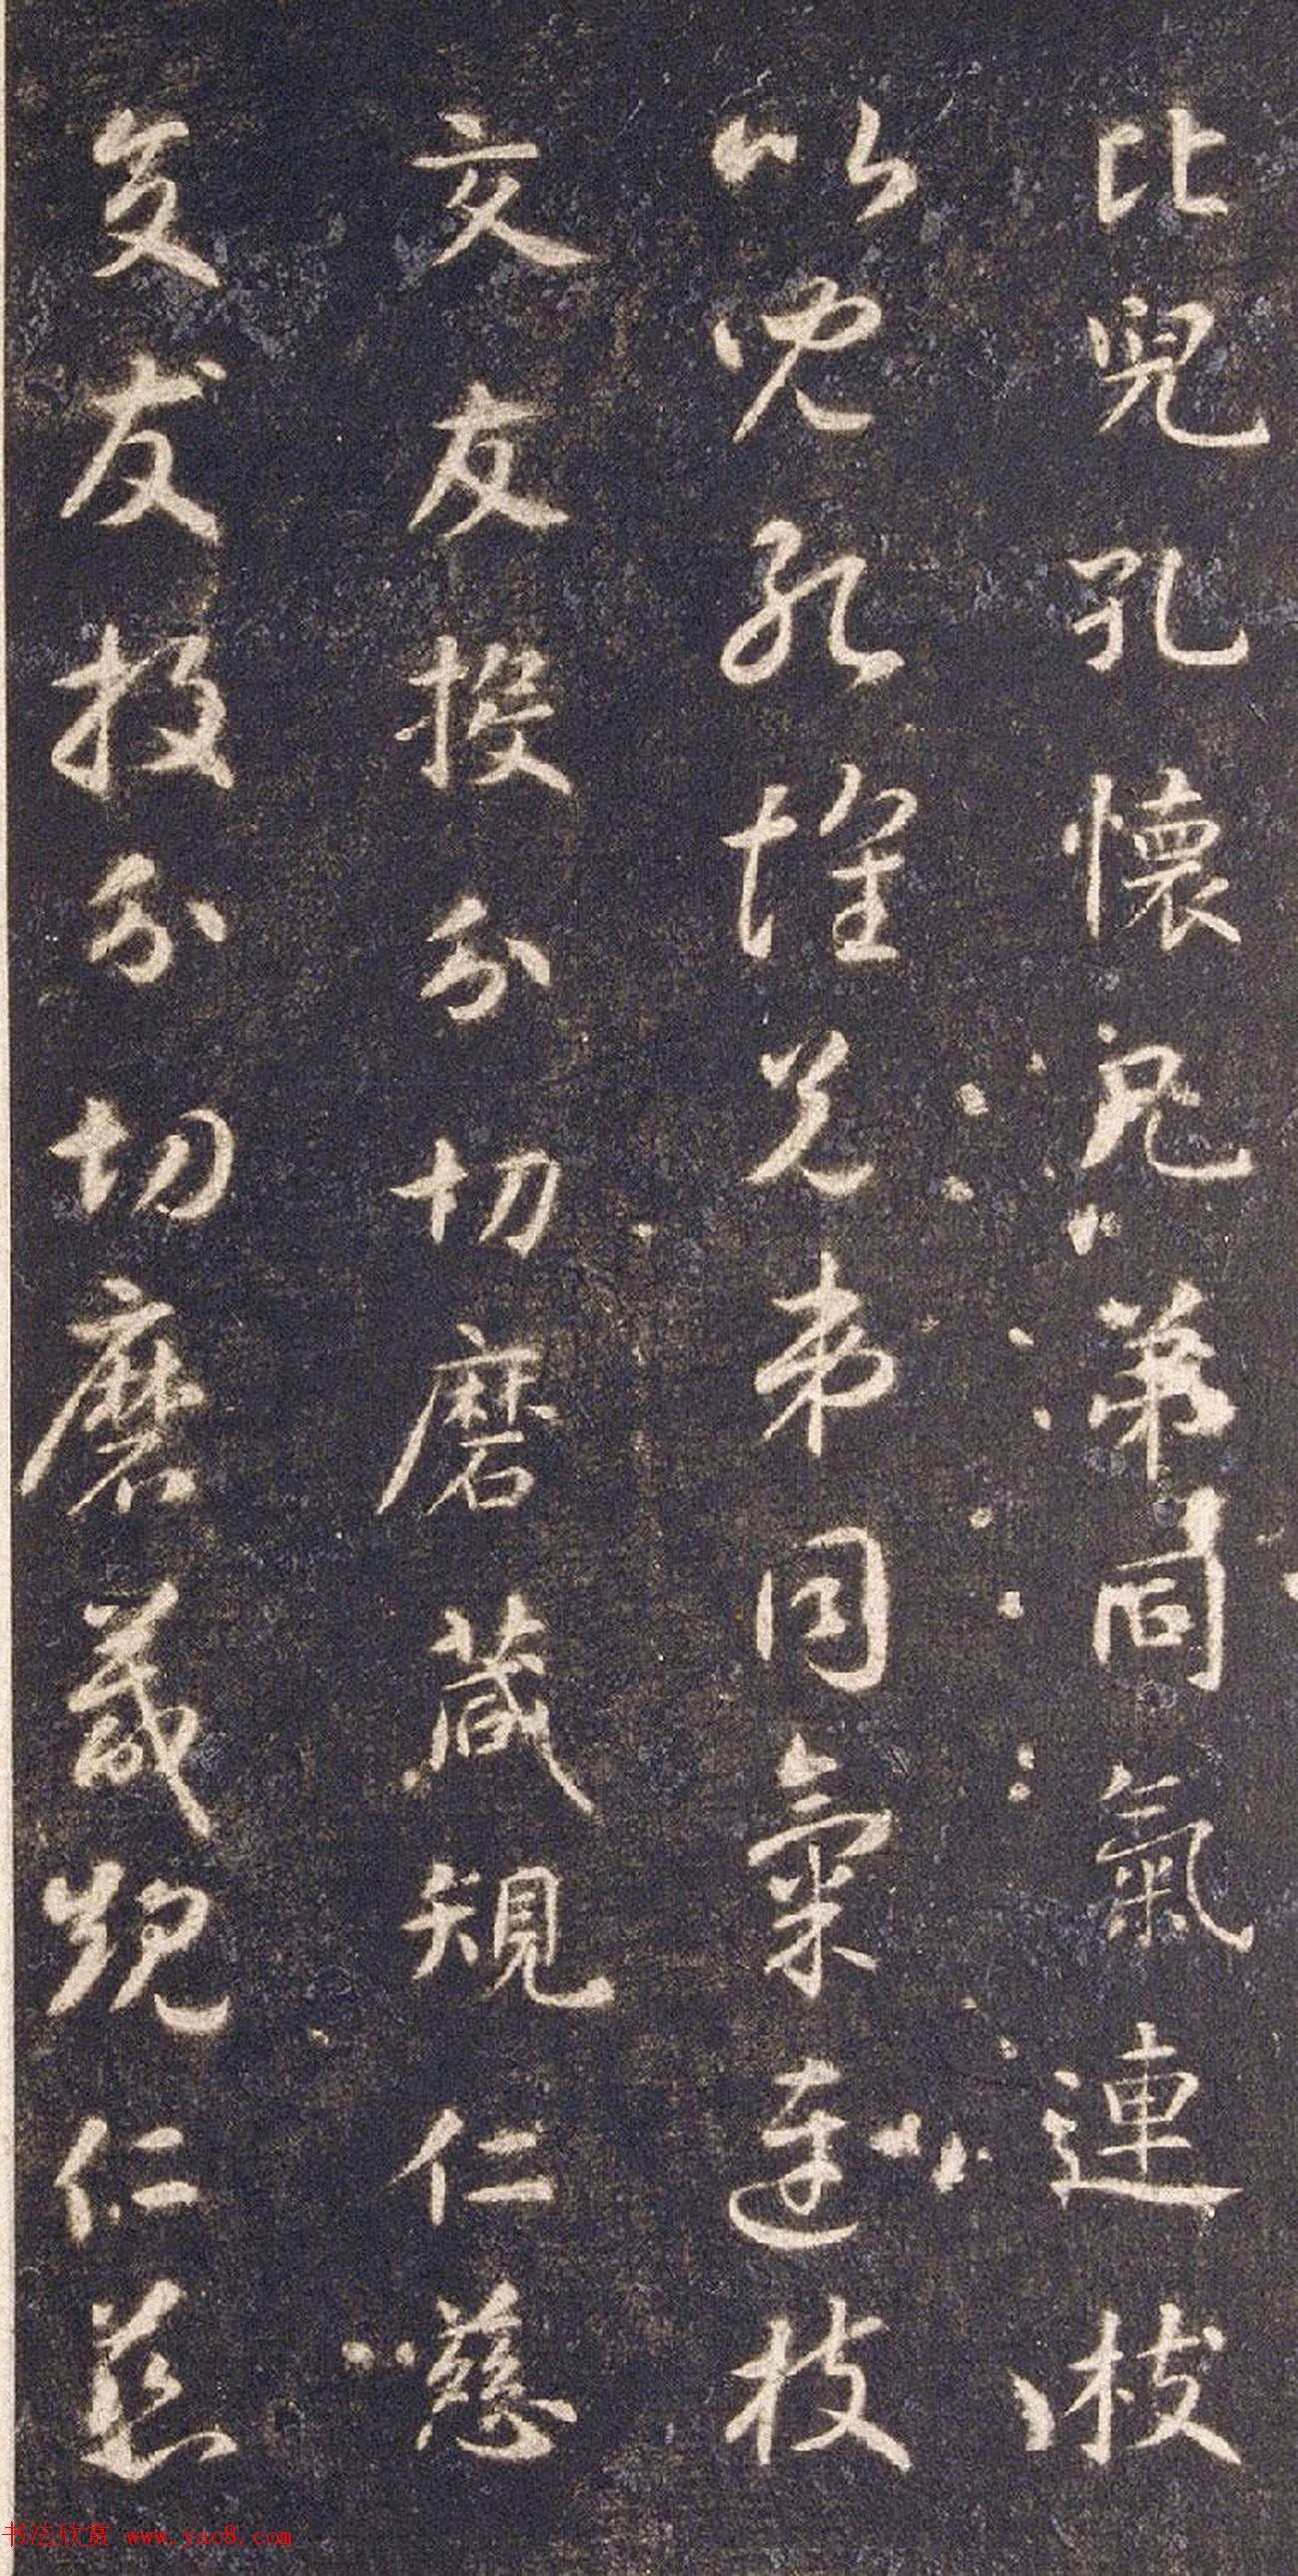 比兒孔懷兄弟同氣連枝
比兒孔懷兄弟同氣連枝
交友投分切磨箴規仁慈
交友投分切磨箴規仁慈
书法欣赏 www.yac8.com